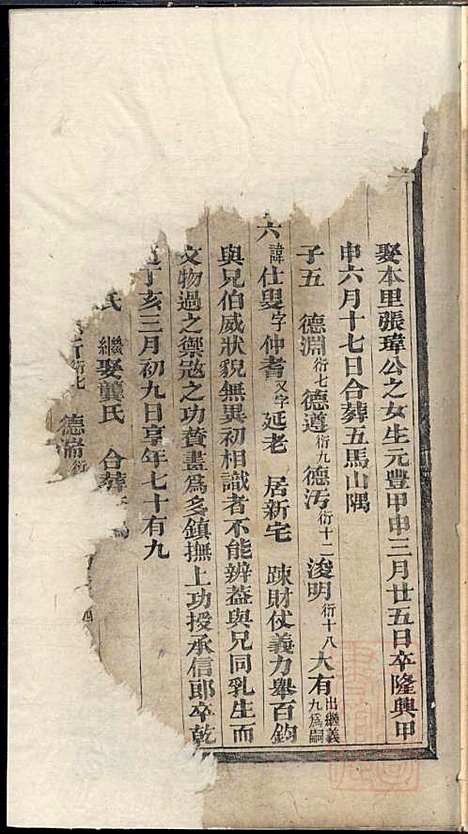 娶本里張瑋公之女生元豐甲申三月廿五日卒隆興甲
申六月十七日合葬五馬山隅
子五 德淵衍七德遵衍九德汚衍十二浚明衍十八大有出繼義九為嗣
六諱仕叟字仲耆又字延老 居新宅 踈財仗義力舉百鈞
與兄伯威狀貌無異初相識者不能辨蓋與兄同乳生而
文物過之禦寇之功賛畫為多鎮撫上功授承信郎卒乾
道丁亥三月初九日享年七十有九
氏 繼娶龔氏 合葬
衍七 德崙衍